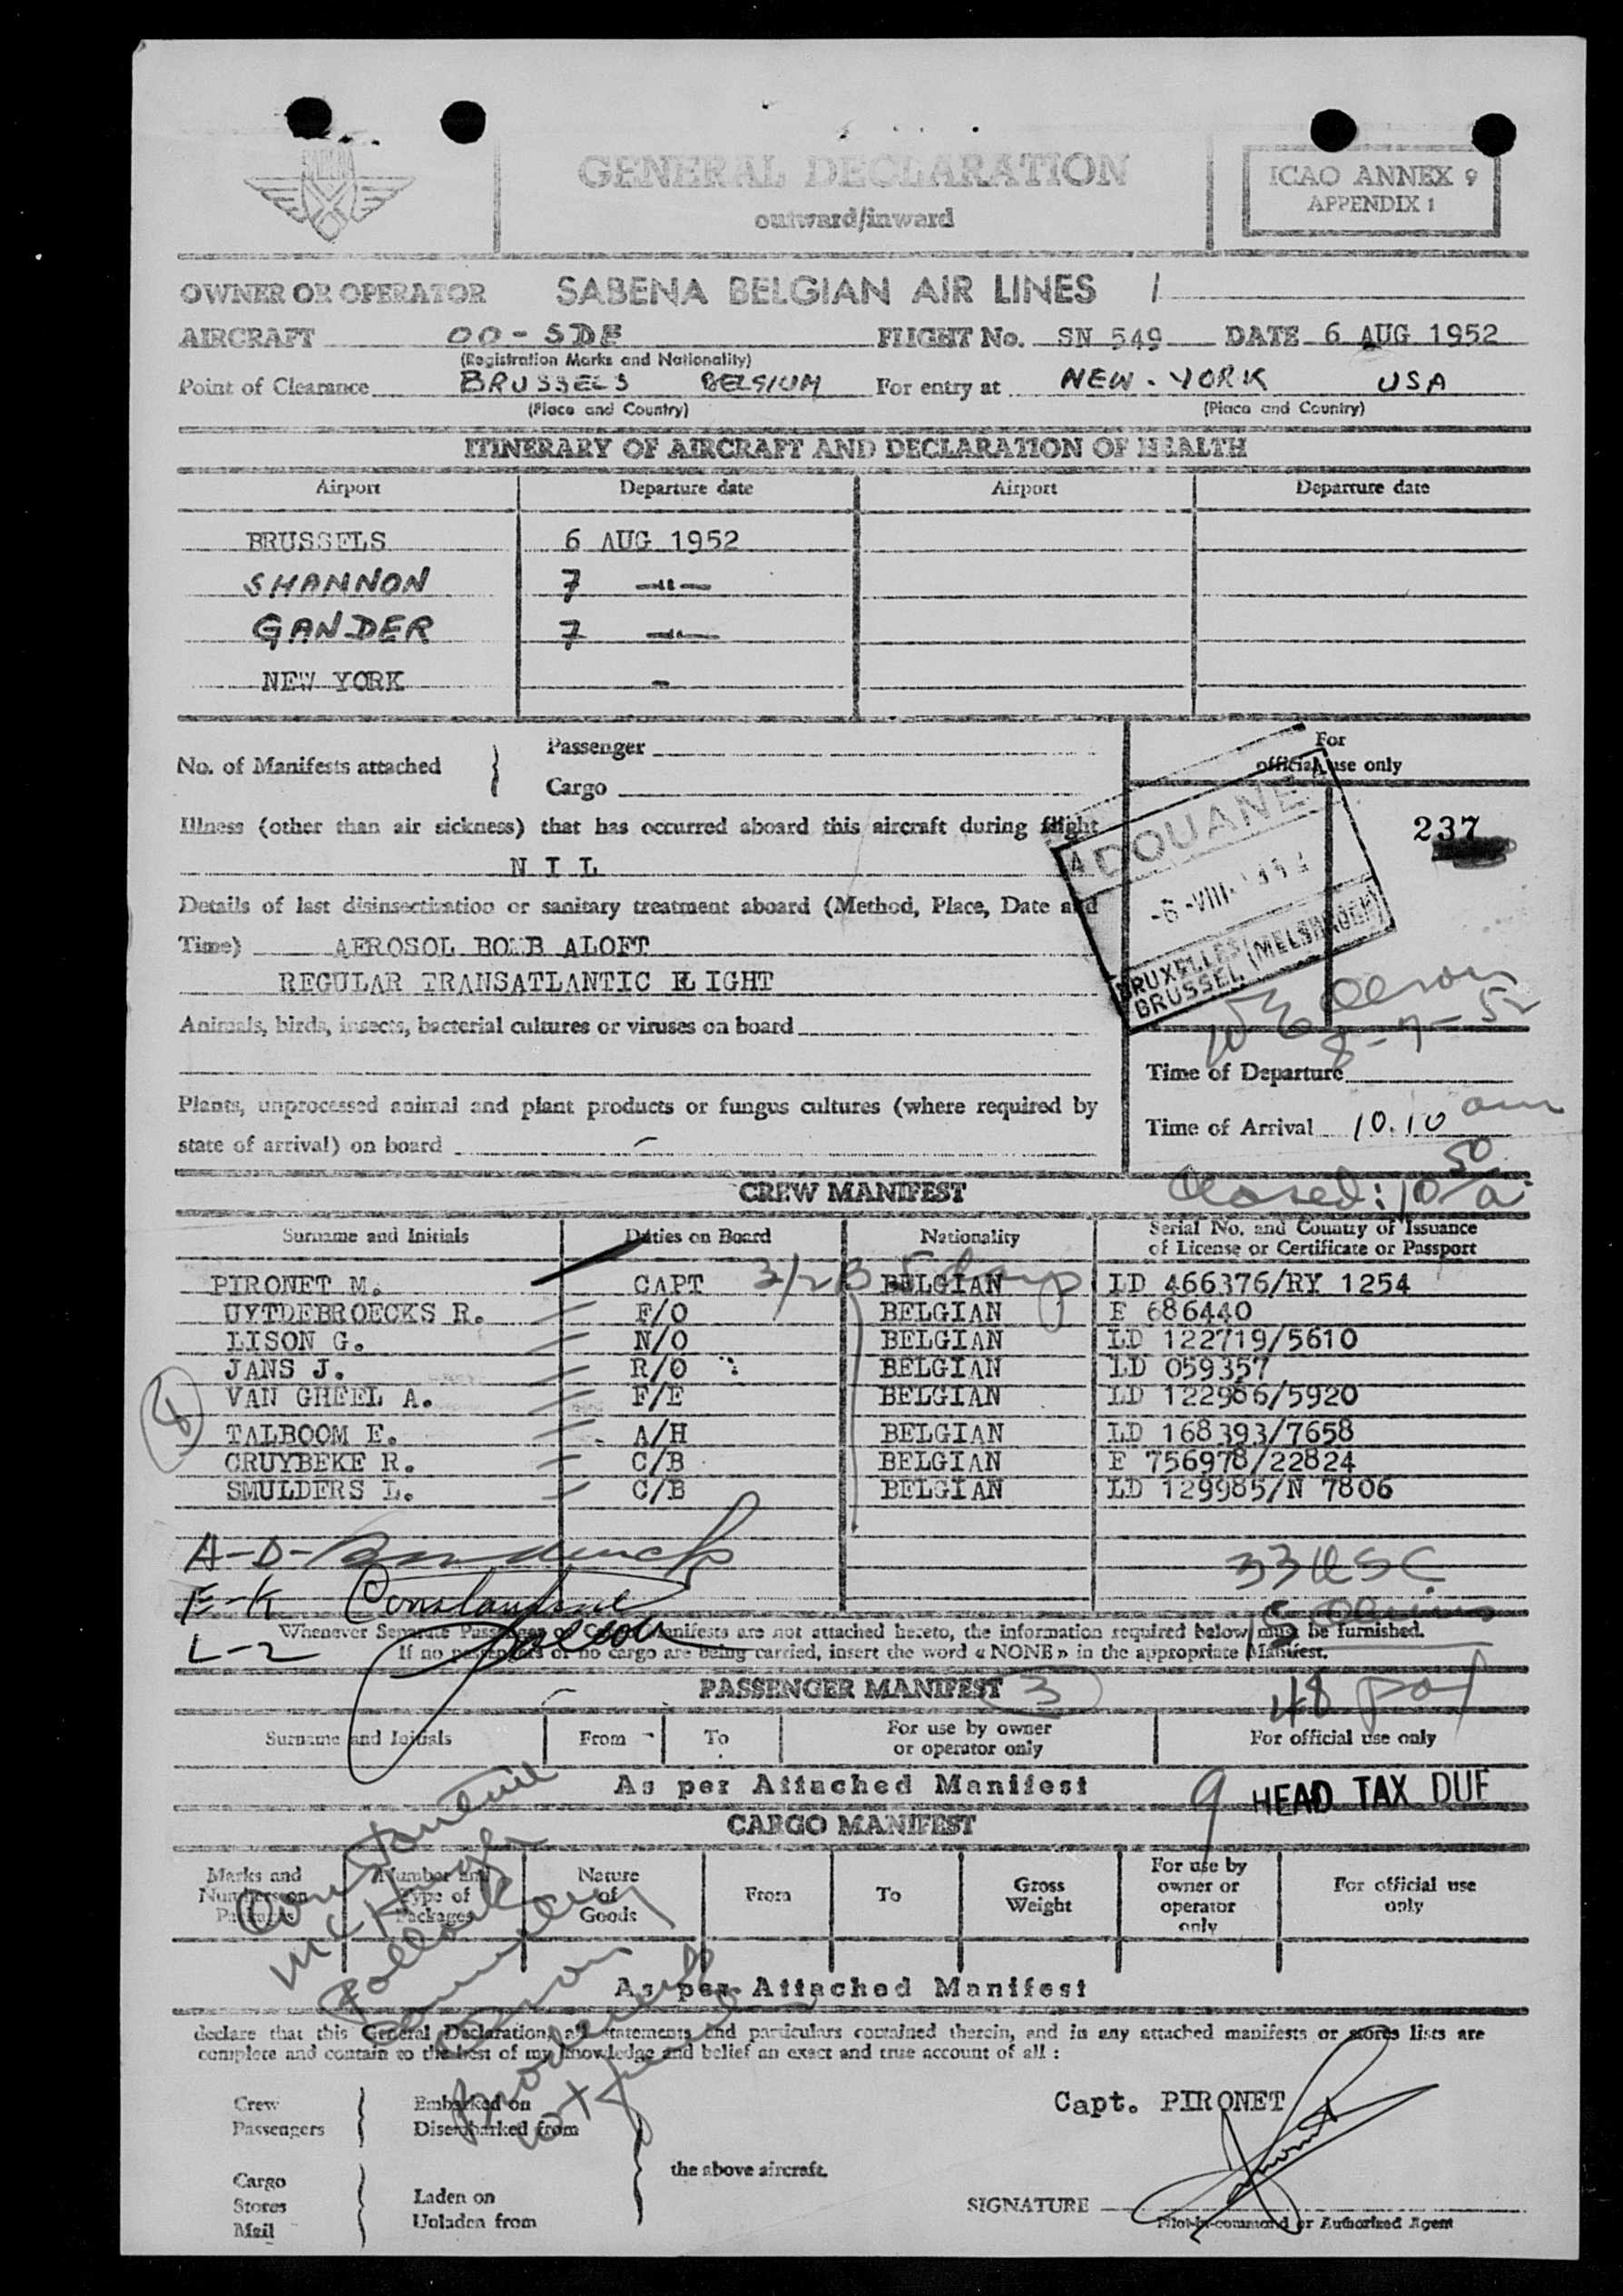 SABENA
GENERAL DECLARATION
outward/inward
ICAO ANNEX 9
APPENDIX 1
OWNER OR OPERATOR SABENA BELGIAN AIR LINES /
AIRCRAFT OO-SDE FLIGHT No. SN 549 DATE 6 AUG 1952
(Registration Marks and Nationality)
Point of Clearance BRUSSELS BELGIUM For entry at NEW-YORK USA
(Place and Country) (Place and Country)
ITINERARY OF AIRCRAFT AND DECLARATION OF HEALTH
Airport Departure date Airport Departure date
BRUSSELS 6 AUG 1952
SHANNON 7 —"—
GANDER 7 —"—
NEW YORK -
No. of Manifests attached
Passenger
Cargo
For
official use only
237
Illness (other than air sickness) that has occurred aboard this aircraft during flight
N I L
Details of last disinsectization or sanitary treatment aboard (Method, Place, Date and
Time) AEROSOL BOMB ALOFT
REGULAR TRANSATLANTIC FLIGHT
DOUANE
-6-VIII-1952
BRUXELLES (MELSBROEK)
BRUSSEL
Animals, birds, insects, bacterial cultures or viruses on board
8-7-52
Time of Departure
Plants, unprocessed animal and plant products or fungus cultures (where required by
state of arrival) on board -
Time of Arrival 10.10 am
Closed: 10 50/a
CREW MANIFEST
Surname and Initials Duties on Board Nationality Serial No. and Country of Issuance
of License or Certificate or Passport
PIRONET M. CAPT BELGIAN LD 466376/RY 1254
UYTDEBROECKS R. F/O BELGIAN E 686440
LISON G. N/O BELGIAN LD 122719/5610
JANS J. R/O BELGIAN LD 059357
VAN GHEEL A. F/E BELGIAN LD 122986/5920
TALBOOM E. A/H BELGIAN LD 168393/7658
CRUYBEKE R. C/B BELGIAN E 756978/22824
SMULDERS L. C/B BELGIAN LD 129985/N 7806
8
3/2 B 5 days
A-D-
33 USC
E-K Constantine
15
L-Z
Whenever Separate Passenger or Cargo Manifests are not attached hereto, the information required below must be furnished.
If no passengers or no cargo are being carried, insert the word « NONE » in the appropriate Manifest.
PASSENGER MANIFEST 3 48 pax
Surname and Initials From To For use by owner
or operator only For official use only
As per Attached Manifest
9 HEAD TAX DUE
CARGO MANIFEST
Marks and
Numbers on
Packages
Number and
Type of
Packages
Nature
of
Goods
From To Gross
Weight
For use by
owner or
operator
only
For official use
only
Constantine
McHugh
Pollock
As per Attached Manifest
declare that this General Declaration, all statements and particulars contained therein, and in any attached manifests or stores lists are
complete and contain to the best of my knowledge and belief an exact and true account of all :
Crew
Passengers
Embarked on
Disembarked from
Cargo
Stores
Mail
Laden on
Unladen from
the above aircraft.
Capt. PIRONET
SIGNATURE
Pilot-in-command or Authorized Agent